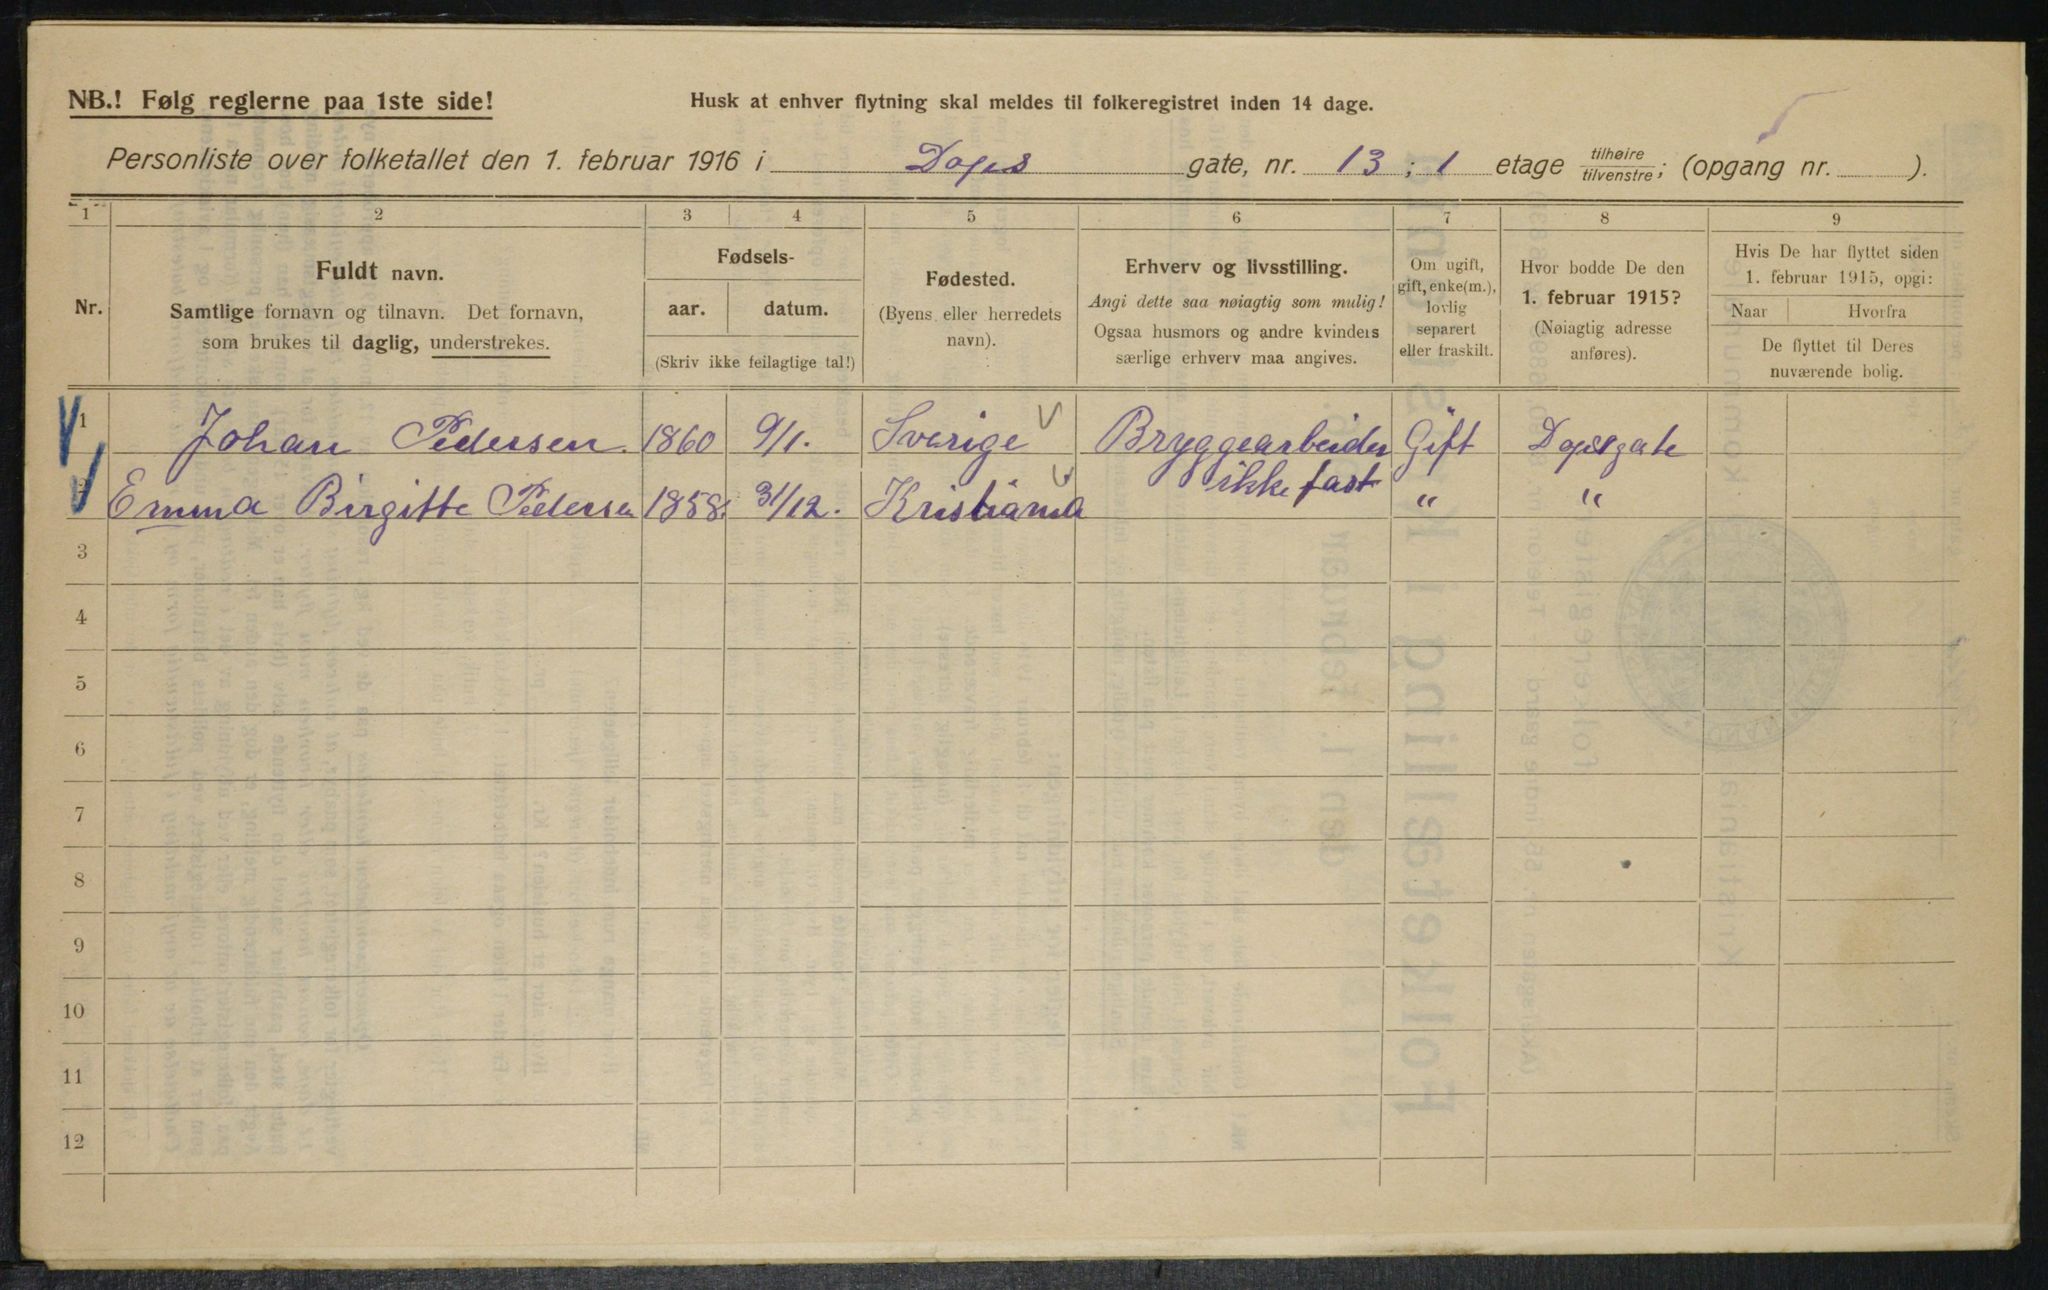 NB.! Følg reglerne paa 1ste side!
Husk at enhver flytning skal meldes til folkeregistret inden 14 dage.
Personliste over folketallet den 1. februar 1916 i Dops gate, nr. 13 ; 1 etage tilhøire tilvenstre; (opgang nr. ).
1 2 3 4 5 6 7 8 9
Nr.
Fuldt navn.
Samtlige fornavn og tilnavn. Det fornavn,
som brukes til daglig, understrekes.
Fødsels-
aar. datum.
(Skriv ikke feilagtige tal!)
Fødested.
(Byens eller herredets
navn).
Erhverv og livsstilling.
Angi dette saa nøiagtig som mulig!
Ogsaa husmors og andre kvinders
særlige erhverv maa angives.
Om ugift,
gift, enke(m.),
lovlig
separert
eller fraskilt.
Hvor bodde De den
1. februar 1915?
(Nøiagtig adresse
anføres).
Hvis De har flyttet siden
1. februar 1915, opgi:
Naar Hvorfra
De flyttet til Deres
nuværende bolig.
1 Johan Pedersen 1860 9/1. Sverige Bryggearbeider Gift Dopsgate
ikke fast
2 Emma Birgitte Pedersen 1858 31/12. Kristiania " "
3
4
5
6
7
8
9
10
11
12